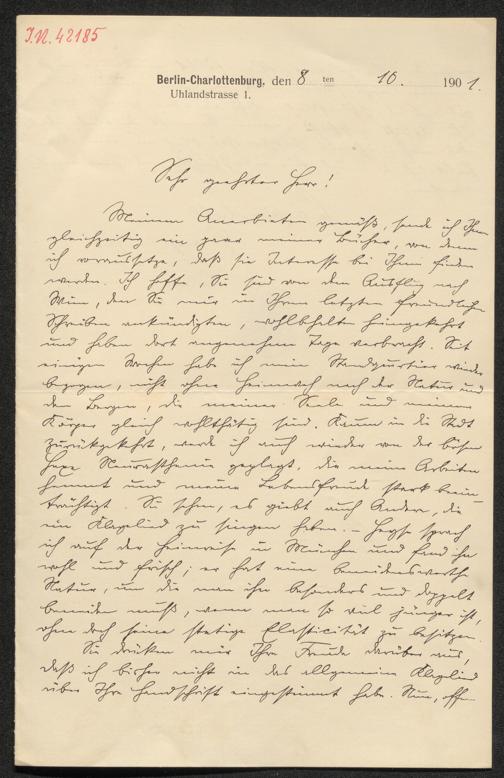 J.N. 42185
Berlin-Charlottenburg, den 8 ten 10. 1901.
Uhlandstrasse 1.
Sehr geehrter Herr!
Meinem Anerbieten gemäß, sende ich Ihnen
gleichzeitig ein paar meiner Bücher, von denen
ich voraussetze, daß sie Interesse bei Ihnen finden
werden. Ich hoffe, Sie sind von dem Ausflug nach
Wien, den Sie mir in Ihrem letzten freundlichen
Schreiben ankündigten, wohlbehalten heimgekehrt
und haben dort angenehme Tage verbracht. Seit
einigen Wochen habe ich mein Standquartier wieder
bezogen, nicht ohne Heimweh nach der Natur und
den Bergen, die meiner Seele und meinem
Körper gleich wohlthätig sind. Kaum in die Stadt
zurückgekehrt, werde ich auch wieder von der bösen
Hexe Neurasthenie geplagt, die meine Arbeiten
hemmt und meine Lebensfreude stark beein-
trächtigt. Sie sehen, es giebt auch Andere, die
ein Klagelied zu singen haben. – Heyse sprach
ich auf der Heimreise in München und fand ihn
wohl und frisch; er hat eine beneidenswerthe
Natur, um die man ihn besonders und doppelt
beneiden muß, wenn man so viel jünger ist,
ohne doch seine stetige Elasticität zu besitzen.
Sie drücken mir Ihre Freude darüber aus,
daß ich bisher nicht in das allgemeine Klagelied
über Ihre Handschrift eingestimmt habe. Nun, offen